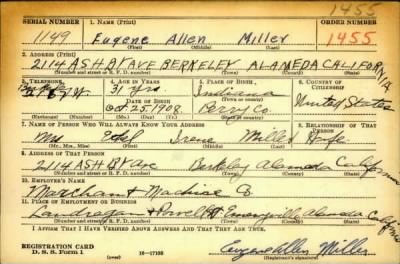 1455
SERIAL NUMBER 1. NAME (Print) ORDER NUMBER
1149 Eugene Allen Miller 1455
(First) (Middle) (Last)
2. ADDRESS (Print)
2114 ASHBY AVE BERKELEY ALAMEDA CALIFORNIA
(Number and street or R. F. D. number) (Town) (County) (State)
3. TELEPHONE 4. AGE IN YEARS 5. PLACE OF BIRTH 6. COUNTRY OF CITIZENSHIP
31 Yrs Indiana
DATE OF BIRTH (Town or county)
Oct 25, 1908 Perry Co. United States
(Mo.) (Day) (Yr.) (State or country)
7. NAME OF PERSON WHO WILL ALWAYS KNOW YOUR ADDRESS 8. RELATIONSHIP OF THAT PERSON
Mrs Ethel Irene Miller Wife
(Mr., Mrs., Miss) (First) (Middle) (Last)
9. ADDRESS OF THAT PERSON
2114 ASHBY Ave Berkeley Alameda California
(Number and street or R. F. D. number) (Town) (County) (State)
10. EMPLOYER'S NAME
Marchant Machine Co
11. PLACE OF EMPLOYMENT OR BUSINESS
Powell St Emeryville Alameda California
(Number and street or R. F. D. number) (Town) (County) (State)
I AFFIRM THAT I HAVE VERIFIED ABOVE ANSWERS AND THAT THEY ARE TRUE.
REGISTRATION CARD
D. S. S. Form 1 16—17105 Eugene Allen Miller
(Registrant's signature)